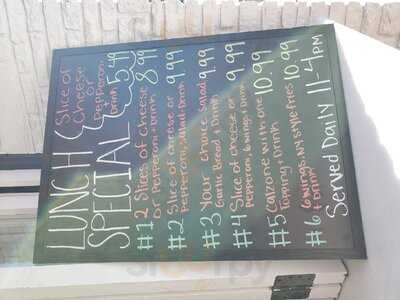 LUNCH SPECIAL
Slice of
Cheese
or
Pepperoni
+
Drink 5.49
#1 2 Slices of cheese 8.99
or Pepperoni + Drink
#2 Slice of cheese or 9.99
Pepperoni, Salad + Drink
#3 Your choice Salad 9.99
Garlic Bread + Drink
#4 Slice of cheese or 9.99
Pepperoni, 6 wings + Drink
#5 Calzone with one 10.99
Topping + Drink
#6 6 wings, NY Style Fries 10.99
+ Drink
Served Daily 11-4pm
Sirved